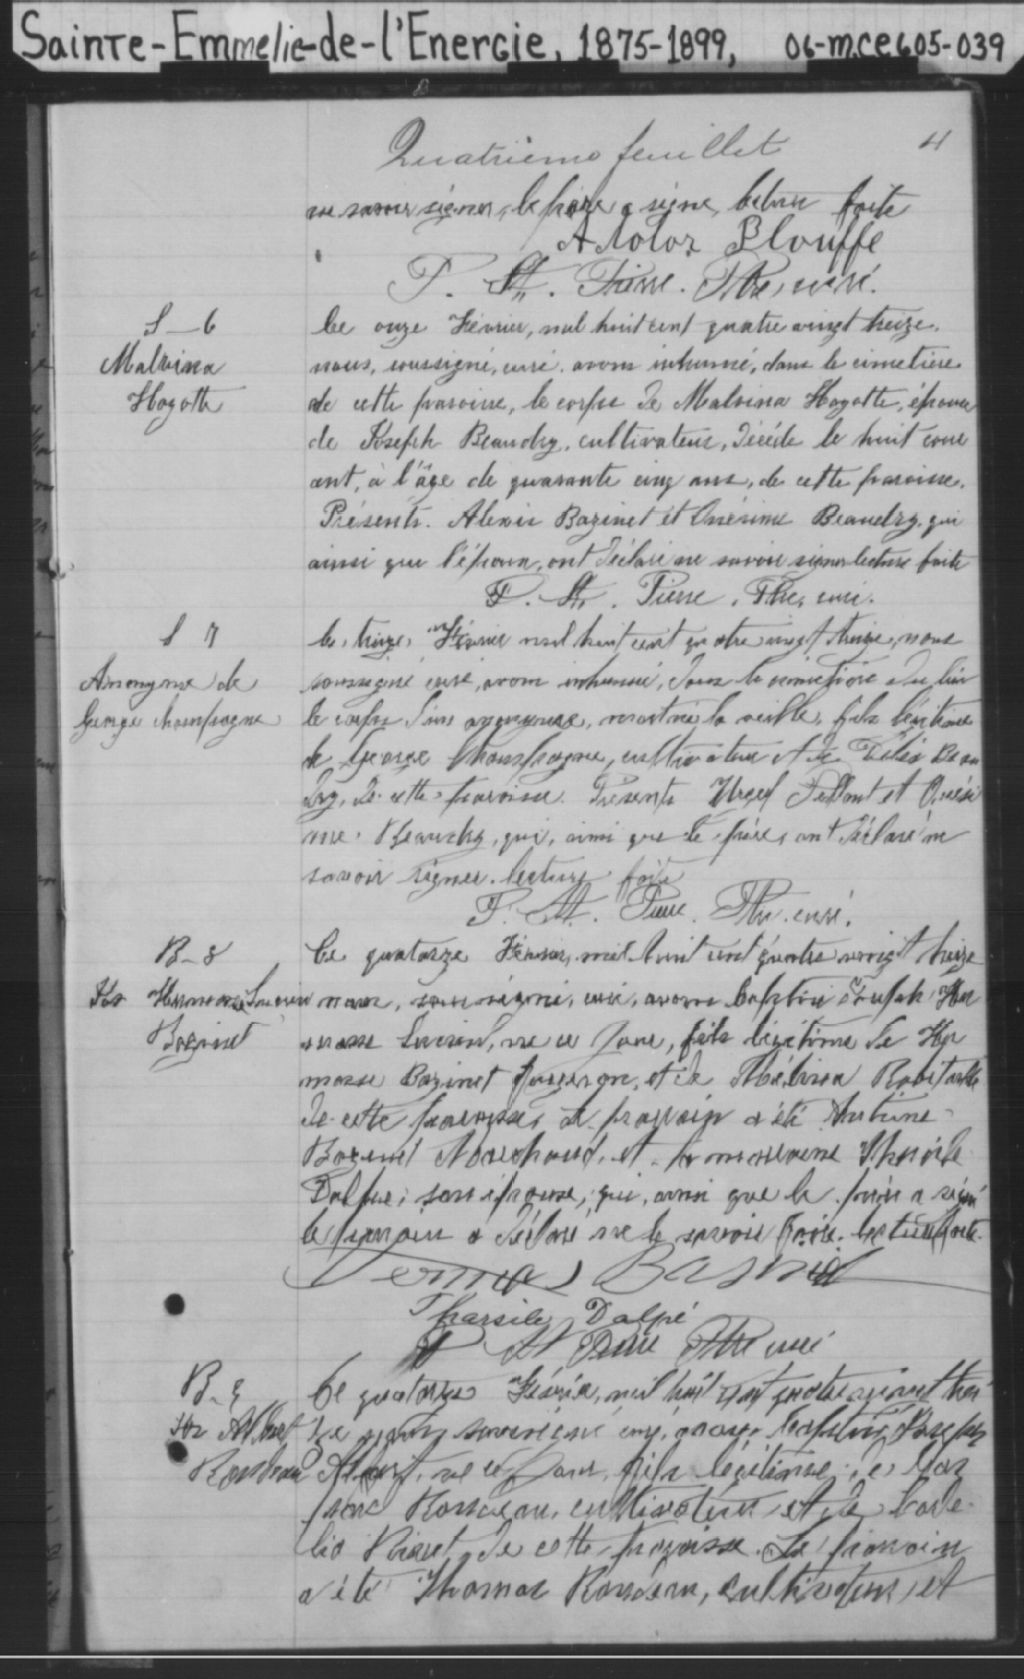 Sainte-Emmelie-de-l'Energie, 1875-1899, 06-M.CE605-039
Quatrième feuillet 4
ne savoir signer, le père a signé, lecture faite
A Plouffe
P. St. Pierre. Ptre, curé.
S_6
Malvina
Hogotte
Le onze Février, mil huit cent quatre vingt treize.
nous, soussigné, curé, avons inhumé, dans le cimetière
de cette paroisse, le corps de Malvina Hogotte, épouse
de Joseph Beaudry, cultivateur, décédé le huit cour
ant, à l'âge de quarante cinq ans, de cette paroisse.
Présents. Alexis Bazinet et Onésime Beaudry, qui
ainsi que l'époux, ont déclaré ne savoir signer lecture faite
P. St. Pierre. Ptre, curé.
S 7
Anonyme de
George Champagne
Le treize, Février mil huit cent quatre vingt treize, nous
soussigné curé, avons inhumé, dans le cimetière du lieu
le corps d'un anonyme, mort né la veille, fils légitime
de George Champagne, cultivateur et de Délia Beau
dry, de cette paroisse. Présents et Onési
me Beaudry, qui, ainsi que le père, ont déclaré ne
savoir signer. lecture faite
P. St. Pierre. Ptre. curé.
B_8
Jos
Bazinet
Le quatorze Février, mil huit cent quatre vingt treize
nous, soussigné, curé, avons baptisé Joseph
né ce jour, fils légitime de
Bazinet et de Robitaille
de cette paroisse, Le parrain a été Antoine
Bazinet et la marraine
Dalpé, son épouse, qui, ainsi que le père a signé
le parrain a déclaré ne le savoir faire. lecture faite.
Tharsile Dalpé
P St Pierre Ptre curé
B_9
Jos Albert
Rondeau
Le quatorze Février, mil huit cent quatre vingt trei
ze nous soussigné curé, avons baptisé Joseph
Albert, né ce jour, fils légitime de
Rondeau, cultivateur et de
de cette paroisse. Le parrain
a été Thomas Rondeau, cultivateur, et